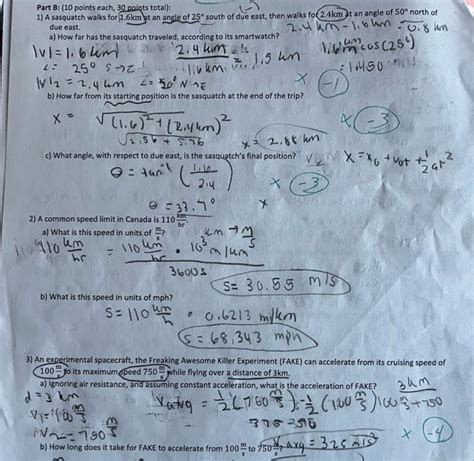 Part B: (10 points each, 30 points total):
1) A sasquatch walks for 1.6km at an angle of 25° south of due east, then walks for 2.4km at an angle of 50° north of
due east.
a) How far has the sasquatch traveled, according to its smartwatch?
|V|= 1.6 km
2.4 km
1.6 km
= 1.5 km
1.6 km cos(25°)
∠= 25° S→E
= 1.450
|V|2 = 2.4 km ∠= 50° N→E
x -1
b) How far from its starting position is the sasquatch at the end of the trip?
x -3
x = √(1.6)² + (2.4km)²
√2.56 + 5.76
x= 2.88 km
c) What angle, with respect to due east, is the sasquatch's final position?
x = x₀ + v₀t + 1/2 at²
θ = tan⁻¹ (1.6/2.4)
x -3
θ = 33.7° x
2) A common speed limit in Canada is 110 km/hr
a) What is this speed in units of m/s?
km → m/s
110 km/hr = 110 km/hr · 10³ m/km
3600s
S= 30.55 m/s
b) What is this speed in units of mph?
S= 110 km/h · 0.6213 mi/km
S= 68.343 mph
3) An experimental spacecraft, the Freaking Awesome Killer Experiment (FAKE) can accelerate from its cruising speed of
100 m/s to its maximum speed 750 m/s while flying over a distance of 3km.
a) Ignoring air resistance, and assuming constant acceleration, what is the acceleration of FAKE?
3km
d= 3 km
V₁=100 m/s
V₂=750 m/s
Vavg = 1/2 (750 m/s) - 1/2 (100 m/s)
100 + 750
Vavg = 325 m/s²
x -4
b) How long does it take for FAKE to accelerate from 100 m/s to 750 m/s?